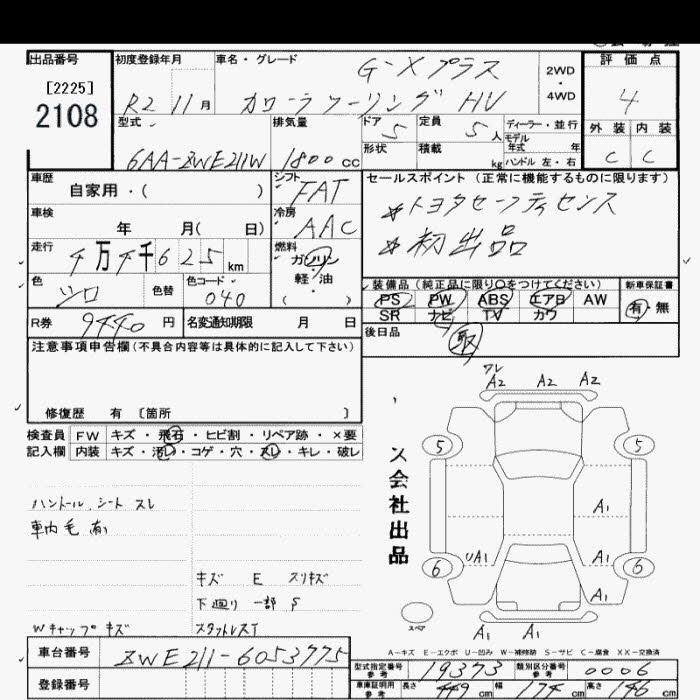 出品番号
[2225]
2108
初度登録年月
R2 11月
車名・グレード
G-Xプラス
カローラツーリング HV
2WD
・
4WD
評価点
4
外装 内装
C C
型式
6AA-ZWE211W
排気量
1800cc
ドア 5
定員 5人
ディーラー・並行
モデル年式 年
形状
積載 kg
ハンドル 左・右
車歴
自家用・( )
シフト
FAT
セールスポイント(正常に機能するものに限ります)
*トヨタセーフティセンス
*初出品
車検
年 月( 日)
冷房
AAC
走行
4万4千625km
燃料
ガソリン
軽・油
・( )
色
シロ
色替
色コード
040
装備品(純正品に限り○をつけてください)
PS PW ABS エアB AW
SR ナビ TV カワ
新車保証書
有・無
R券 9440円
名変通知期限 月 日
後日品
取
注意事項申告欄(不具合内容等は具体的に記入して下さい)
修復歴 有 〔箇所 〕
検査員記入欄
FW キズ・飛石・ヒビ割・リペア跡・×要
内装 キズ・汚レ・コゲ・穴・スレ・キレ・破レ
ハンドル、シート スレ
車内毛 有り
キズ E スリキズ
下廻り 一部 S
Wキャップキズ
スタットレスT
ワレ
A2 A2 A2
5 5
A1
UA1 A1
6 6
A1
A1 A1
スペア
会社出品
A-キズ E-エクボ U-凹み W-補修跡 S-サビ C-腐食 XX-交換済
車台番号
ZWE211-6053775
登録番号
型式指定番号 参考
19373
類別区分番号 参考
0006
車庫証明用 参考
長さ 449cm
幅 174cm
高さ 146cm